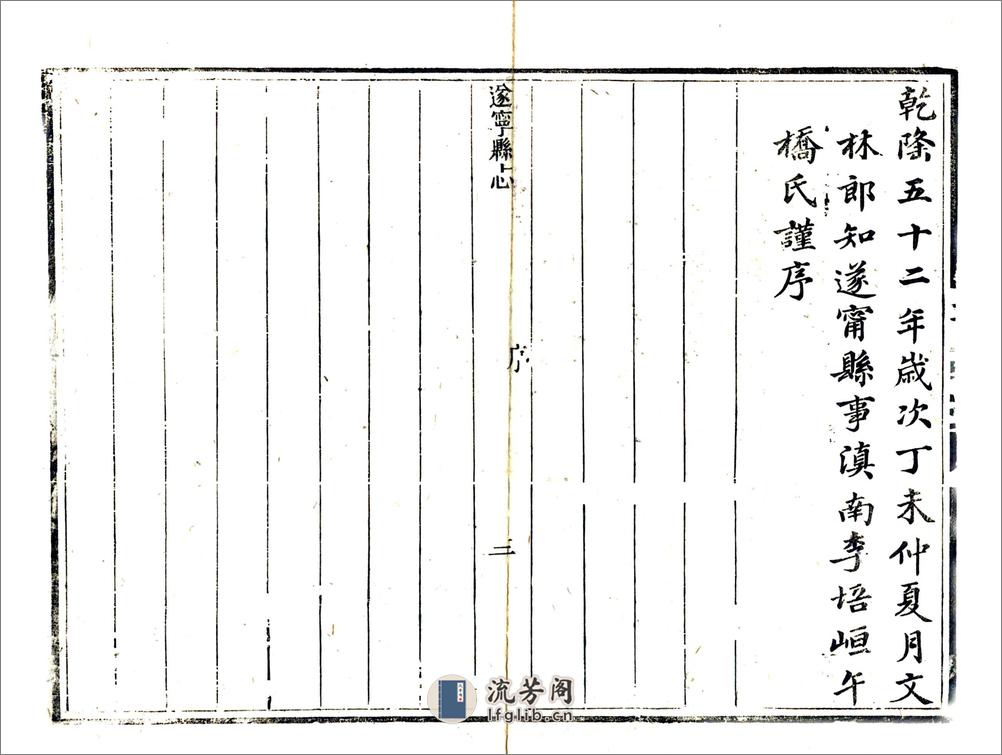 乾隆五十二年歲次丁未仲夏月文
林郎知遂甯縣事滇南李培峘午
橋氏謹序
遂寧縣志
序
三
流芳阁
lfglib.cn